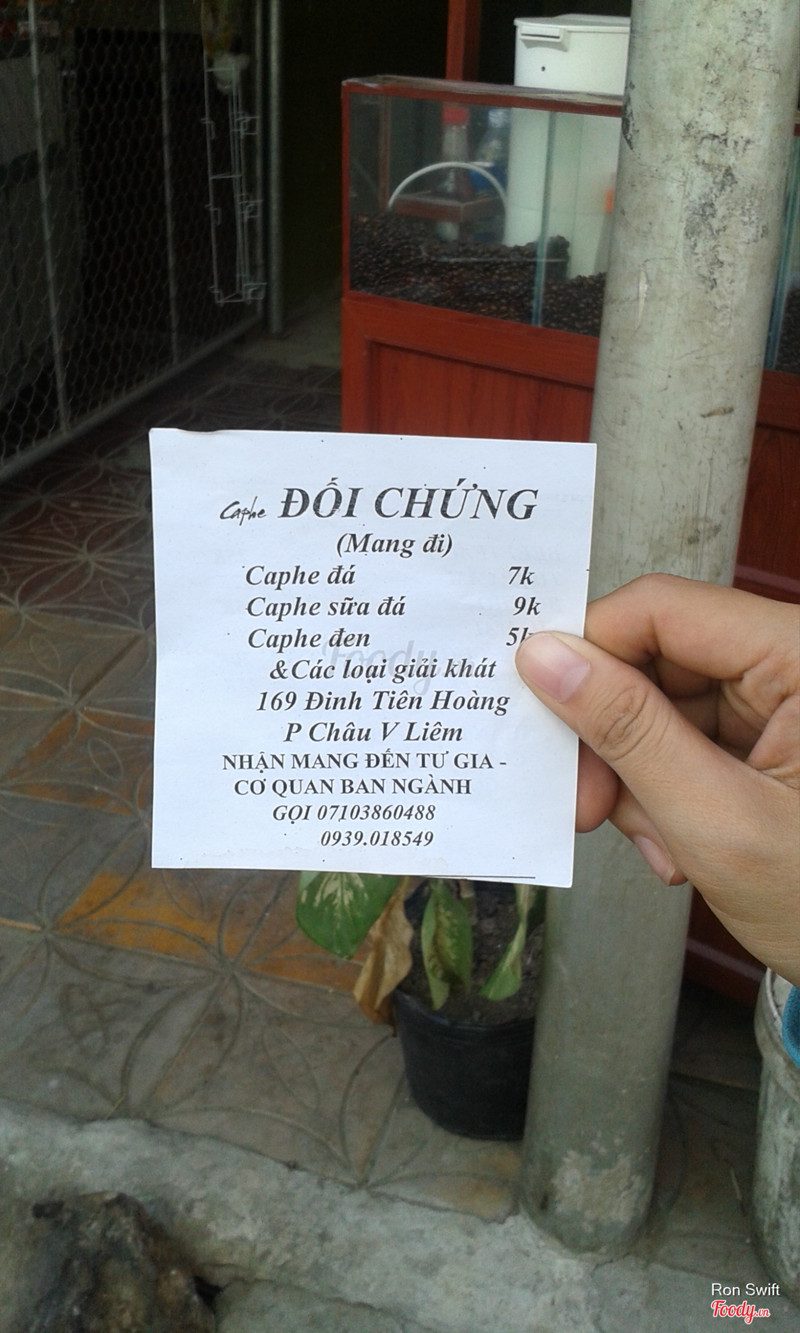 Caphe ĐỐI CHỨNG
(Mang đi)
Caphe đá 7k
Caphe sữa đá 9k
Caphe đen 5k
&Các loại giải khát
169 Đinh Tiên Hoàng
P Châu V Liêm
NHẬN MANG ĐẾN TƯ GIA -
CƠ QUAN BAN NGÀNH
GỌI 07103860488
0939.018549
Foody
Ron Swift
Foody.vn